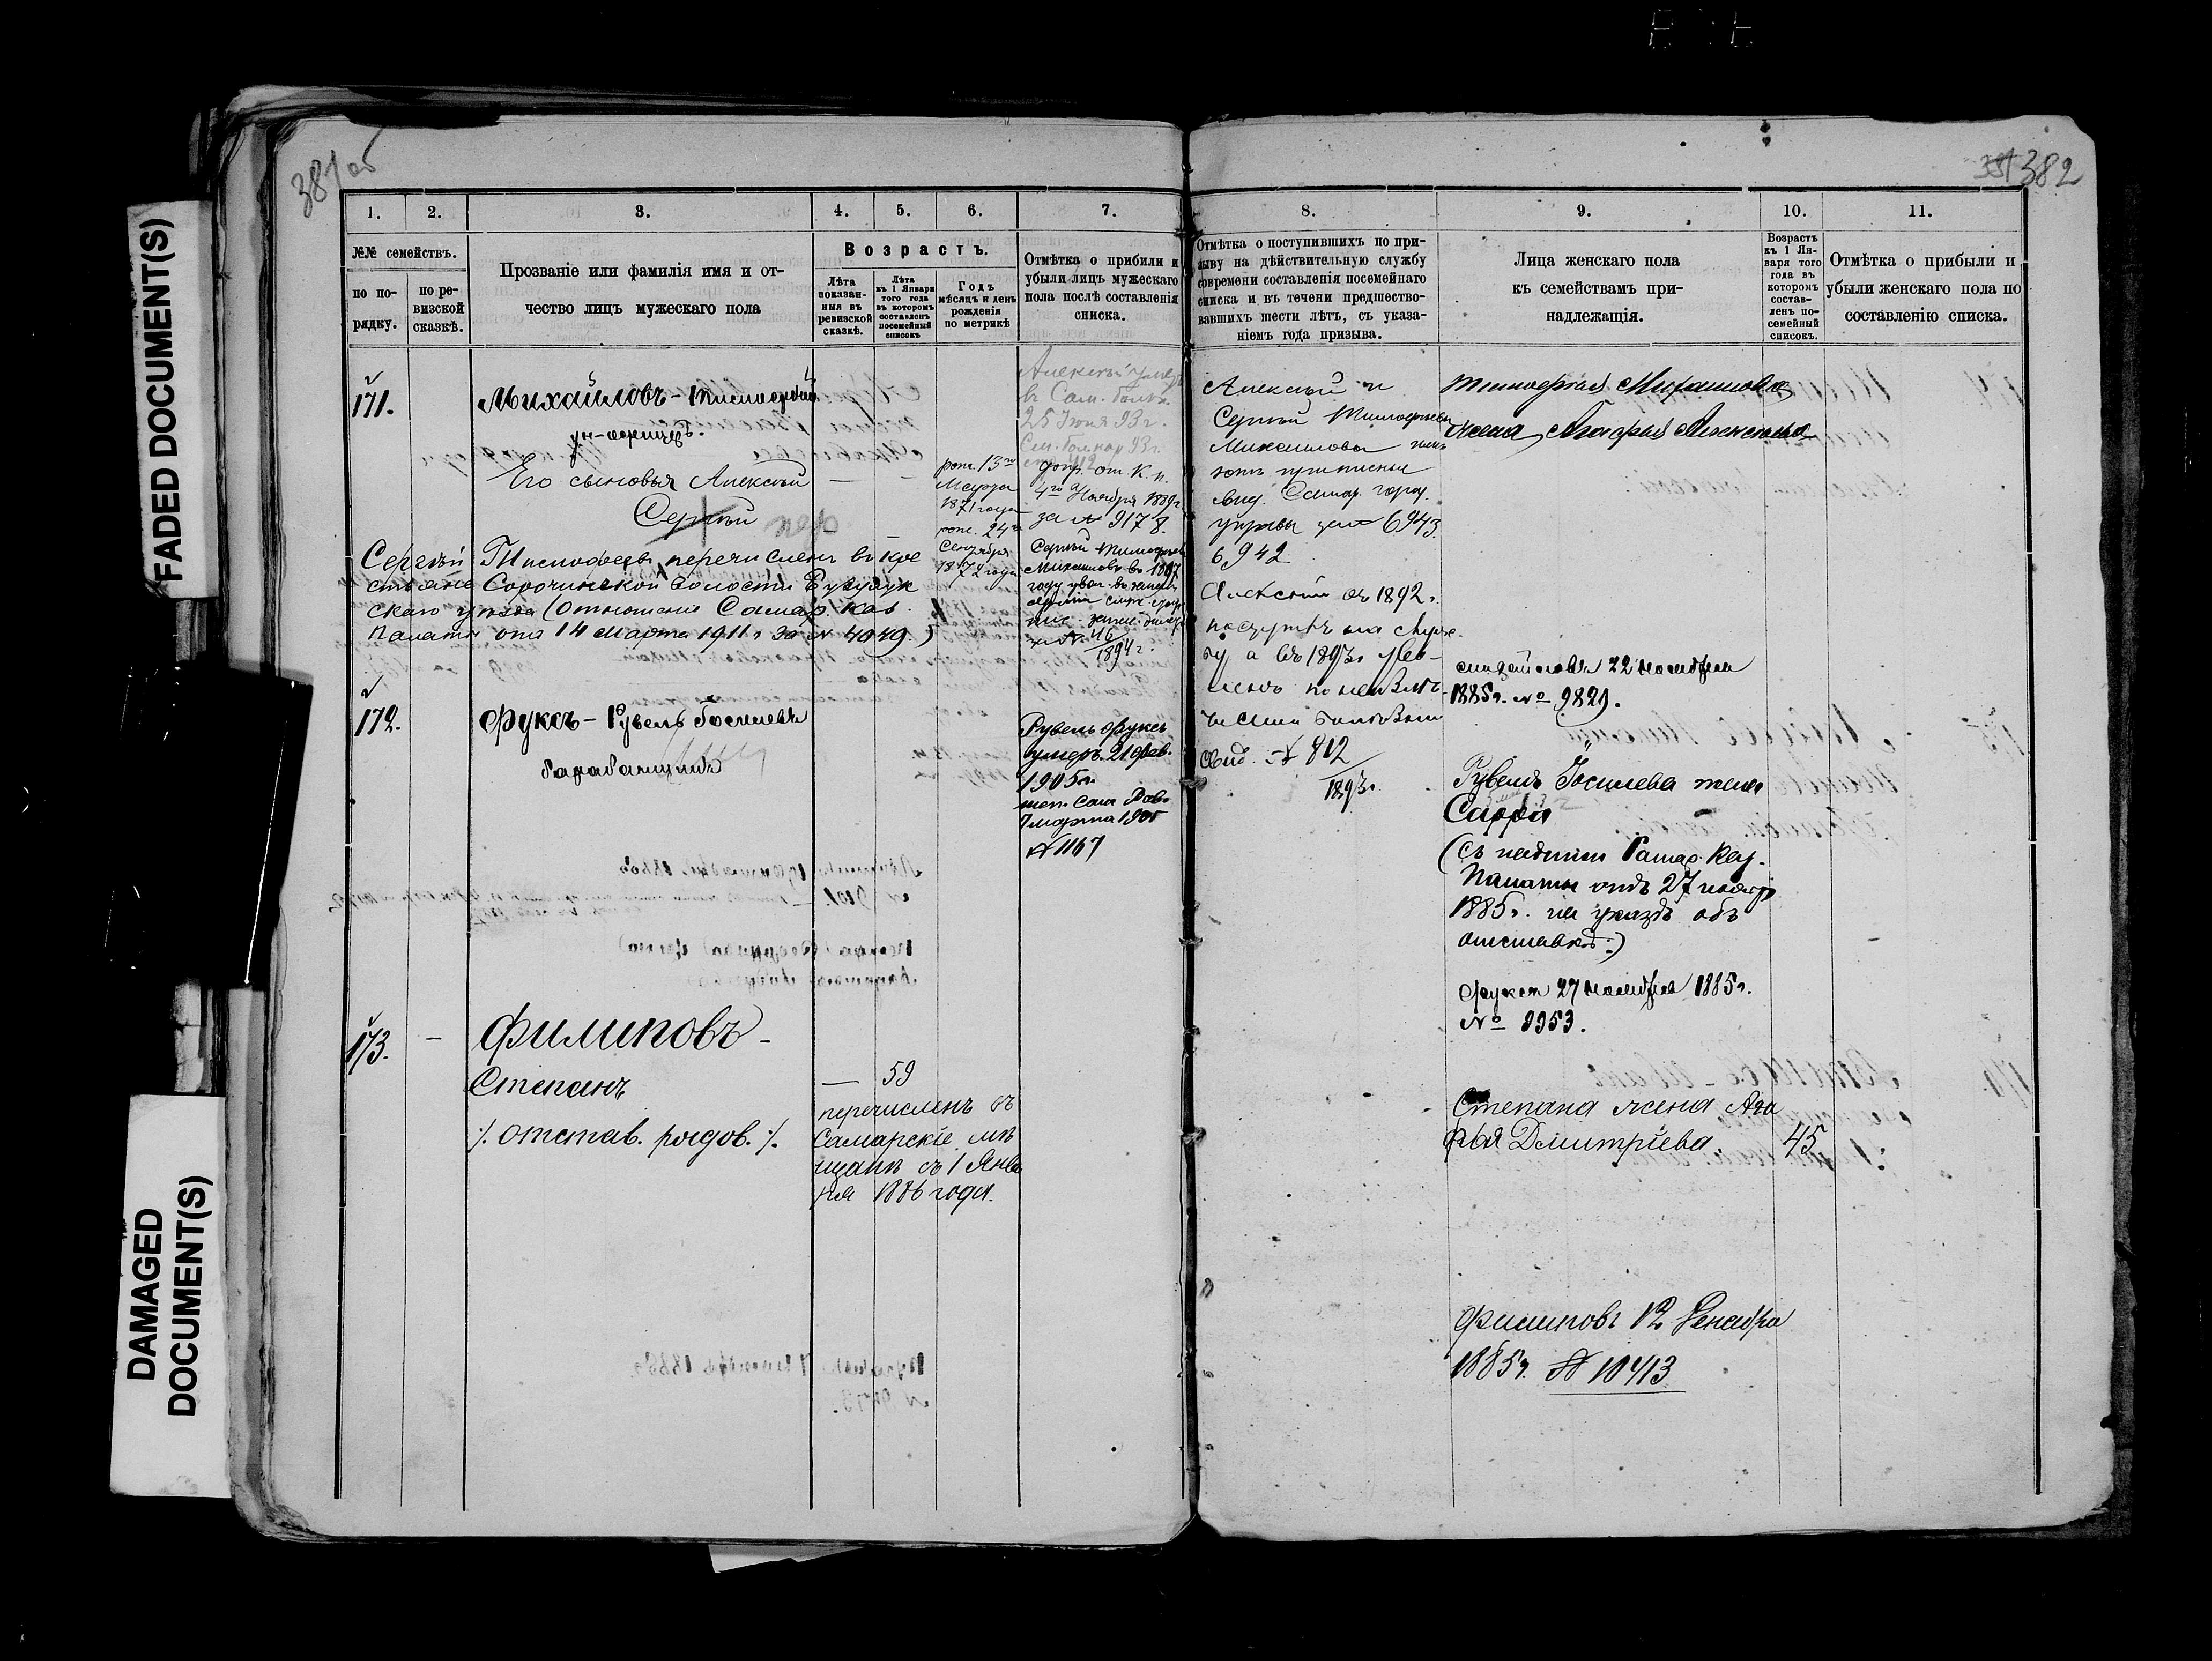 FADED DOCUMENT(S)
DAMAGED
DOCUMENT(S)
381об
381 382
1.
2.
3.
4.
5.
6.
7.
8.
9.
10.
11.
№№ семействъ.
по по-
рядку.
по ре-
визской
сказкѣ.
Прозваніе или фамилія имя и от-
чество лицъ мужескаго пола
Возрастъ.
Лѣта
показан-
ныя въ
ревизской
сказкѣ.
Лѣта
къ 1 Января
того года
въ которомъ
составленъ
посемейный
списокъ
Годъ
мѣсяцъ и день
рожденія
по метрикѣ
Отмѣтка о прибыли и
убыли лицъ мужескаго
пола послѣ составленія
списка.
Отмѣтка о поступившихъ по при-
зыву на дѣйствительную службу
современи составленія посемейнаго
списка и въ теченіи предшество-
вавшихъ шести лѣтъ, съ указа-
ніемъ года призыва.
Лица женскаго пола
къ семействамъ при-
надлежащія.
Возрастъ
къ 1 Ян-
варя того
года въ
которомъ
состав-
ленъ по-
семейный
списокъ.
Отмѣтка о прибыли и
убыли женскаго пола по
составленію списка.
171.
Михайловъ - Тимофей
ун-офицеръ.
Его сыновья Алексѣй
Сергѣй
Сергѣй Тимофеевъ перечисленъ въ кре
стьяне Сорочинской волости Бузулук
скаго уѣзда (Отношеніе Самар. Каз.
Палаты отъ 14 Марта 1911 г за № 4949.)
рож. 13го
Марта
1871 года
рож. 24го
Сентября
1872 года
Алексѣй умеръ
въ Сам. больн.
25 Іюня 93 г.
412
отъ К. п.
4го Ноября 1889 г
за № 9178.
Сергѣй Тимофеев
Михайловъ въ 1897
году
за № 46
1894 г.
Алексѣй и
Сергѣй Тимофеевы
Михайловы имѣ
ютъ приписные
свид. Самар. город.
управы за № 6943.
6942
Алексѣй въ 1892 г.
поступилъ на служ-
бу а въ 1893 г. уво-
ленъ по неизлѣ-
чимой болѣзни
свид. № 812
1893 г.
Тимофея Михайлова
жена Агафья Алексѣева
Михайловъ 22 ноября
1885 г. № 9829.
172.
Фуксъ - Рувель Іосилевъ
барабанщикъ
Рувель Фуксъ
умеръ 21 фев.
1905 г.
мет. Сам Рав.
7 марта 1905
№ 1167
Рувеля Іосилева жена
Сарра
(съ надписи Самар. Каз.
Палаты отъ 27 ноябр
1885 г. на указѣ объ
отставкѣ.)
Фуксъ 27 ноября 1885 г.
№ 9953.
173.
-
Филиповъ -
Степанъ
— 59
:/. отстав. рядов. :/.
перечисленъ въ
Самарскіе мѣ
щане съ 1 Янва
ря 1886 года.
Степана жена Ага
фья Дмитріева
45
Филиповъ 12 Декабря
1885 г. № 10413